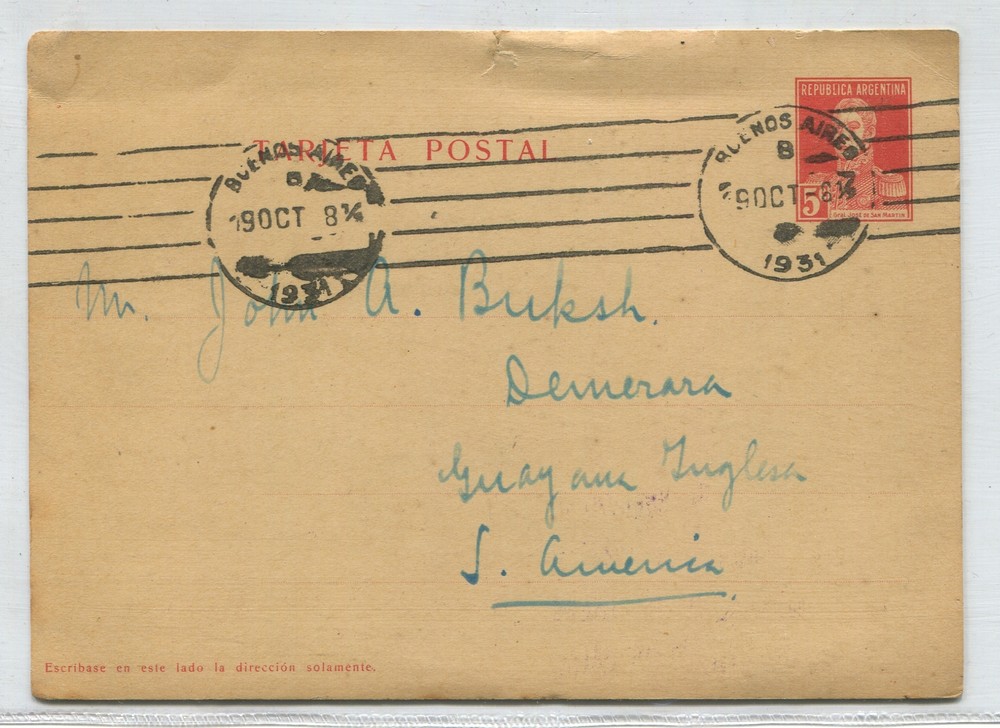 REPUBLICA ARGENTINA
5
Gral. José de San Martin
TARJETA POSTAL
BUENOS AIRES
8
19 OCT 8¼
1931
BUENOS AIRES
8
19 OCT 8¼
1931
Mr. John A. Buksh.
Demerara
Guayana Inglesa
S. America
Escríbase en este lado la dirección solamente.